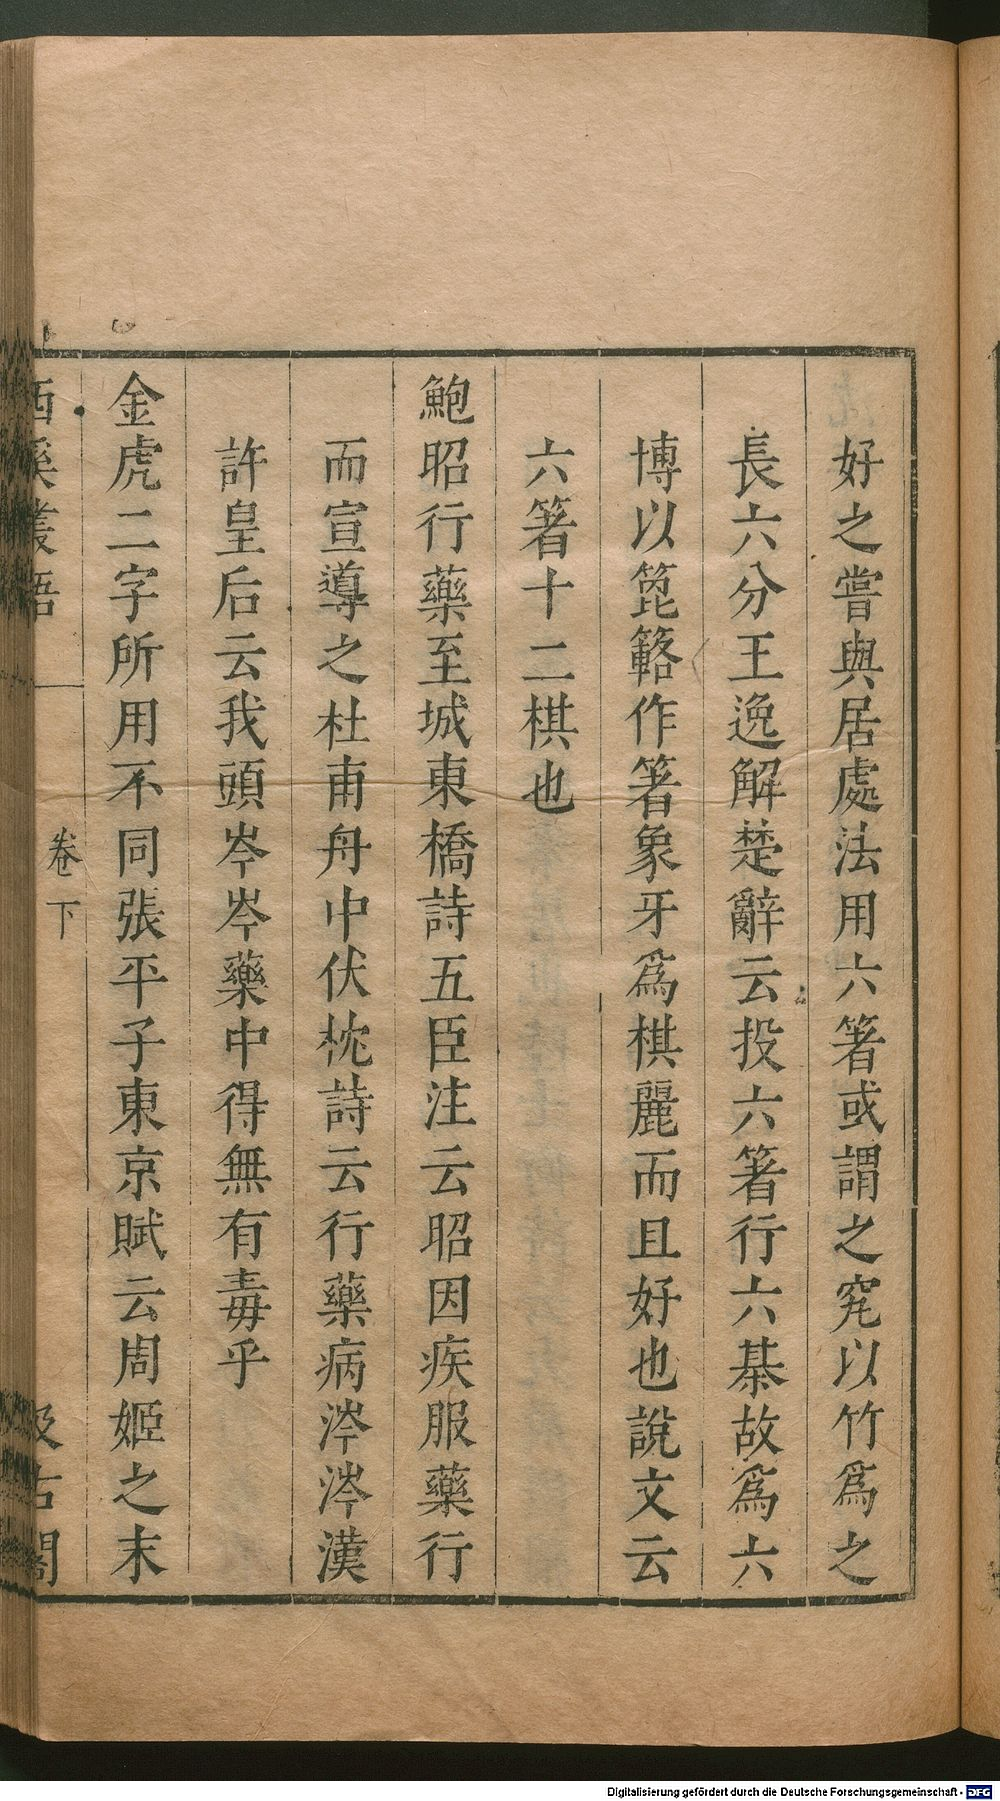 好之嘗與居處法用六箸或謂之究以竹爲之
長六分王逸解楚辭云投六箸行六棊故爲六
博以箆簵作箸象牙爲棋麗而且好也說文云
六箸十二棋也
鮑昭行藥至城東橋詩五臣注云昭因疾服藥行
而宣導之杜甫舟中伏枕詩云行藥病涔涔漢
許皇后云我頭岑岑藥中得無有毒乎
金虎二字所用不同張平子東京賦云周姬之末
西溪叢語
卷下
汲古閣
Digitalisierung gefördert durch die Deutsche Forschungsgemeinschaft - DFG